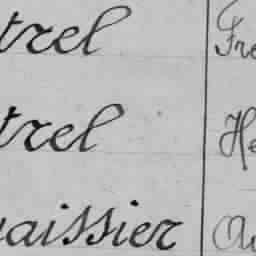 trel Fre
trel He
uaissier Au